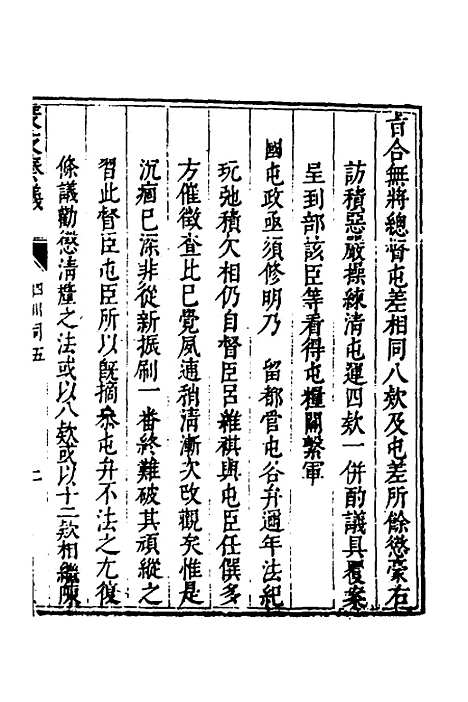 旨合無將總督屯差相同八欵及屯差所餘懲豪右
訪積惡嚴操練清屯運四欵一併酌議具覆案
呈到部該臣等看得屯糧關繫軍
國屯政亟須修明乃 留都管屯各弁邇年法紀
玩弛積欠相仍自督臣呂維祺與屯臣任僎多
方催徵查比已覺夙逋稍清漸次改觀矣惟是
沉痼已深非從新振刷一番終難破其頑縱之
習此督臣屯臣所以旣摘叅屯弁不法之尤復
條議勸懲清釐之法或以八欵或以十二欵相繼陳
四川司五